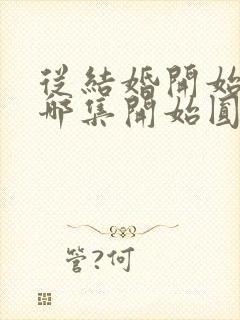 從結婚開始
哪集開始圓
管?何